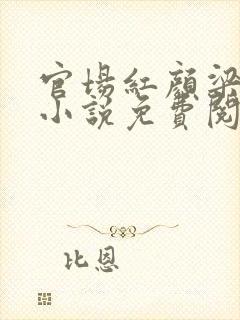 官场紅顏梁
小說免費閱
比恩